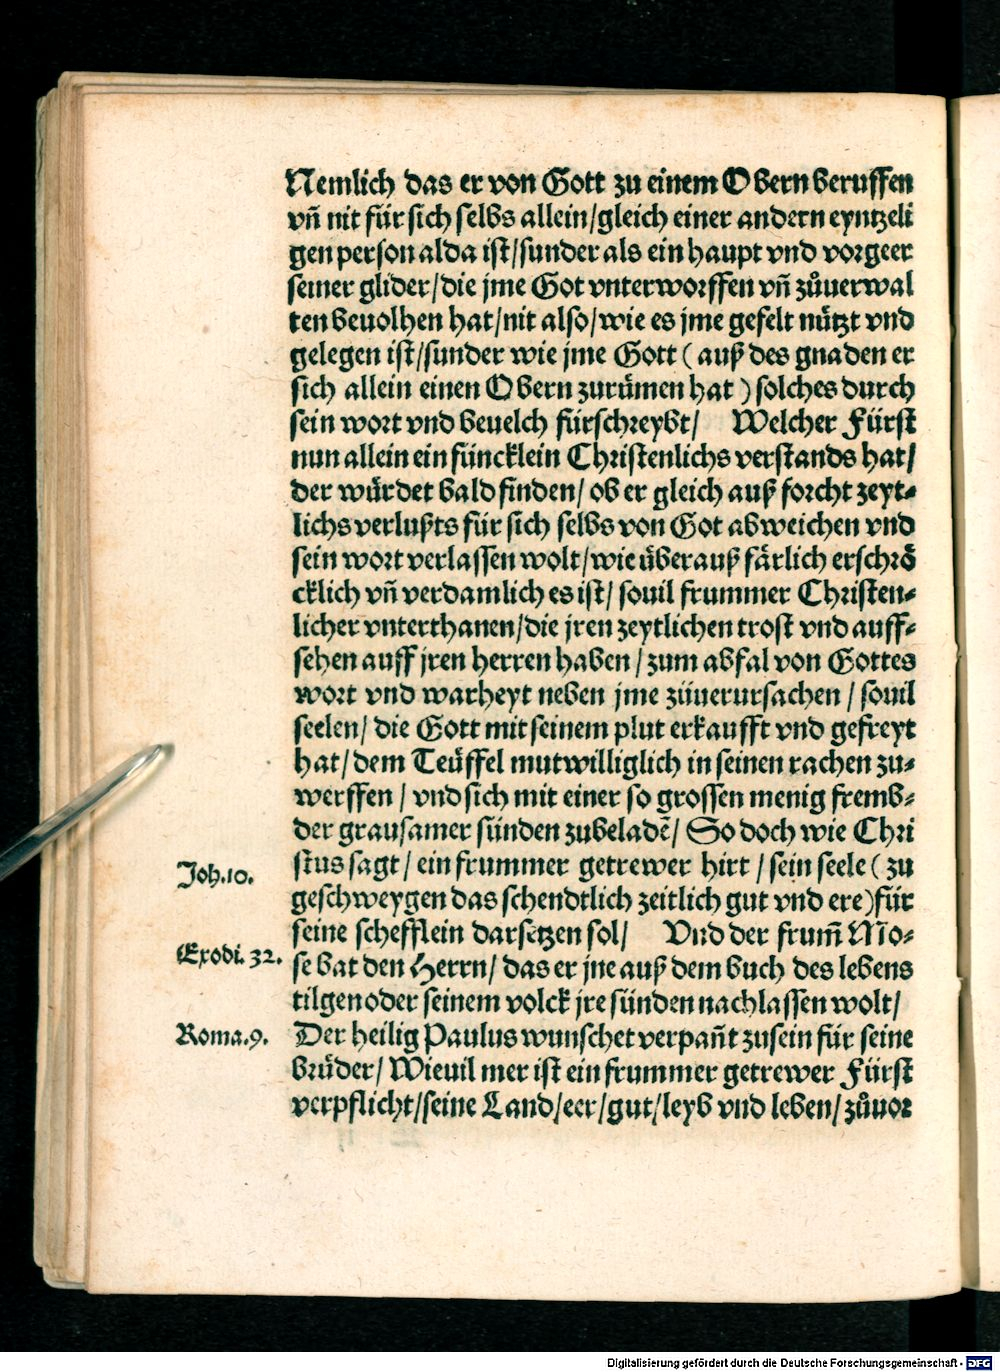 Nemlich das er von Gott zu einem Obern beruffen
vñ nit für sich selbs allein/gleich einer andern eyntzeli
gen person alda ist/sunder als ein haupt vnd vorgeer
seiner glider/die jme Got vnterworffen vñ zůuerwal
ten beuolhen hat/nit also/wie es jme gefelt nützt vnd
gelegen ist/sunder wie jme Gott (auß des gnaden er
sich allein einen Obern zurümen hat) solches durch
sein wort vnd beuelch fürschreybt/ Welcher Fürst
nun allein ein füncklein Christenlichs verstands hat/
der würdet bald finden/ ob er gleich auß forcht zeyt-
lichs verlußts für sich selbs von Got abweichen vnd
sein wort verlassen wolt/wie überauß färlich erschrö
cklich vñ verdamlich es ist/ souil frummer Christen-
licher vnterthanen/die jren zeytlichen trost vnd auff-
sehen auff jren herren haben/zum abfal von Gottes
wort vnd warheyt neben jme züuerursachen/ souil
seelen/ die Gott mit seinem plut erkaufft vnd gefreyt
hat/dem Teüffel mutwilliglich in seinen rachen zu-
werffen/ vnd sich mit einer so grossen menig fremb-
der grausamer sünden zubeladẽ/ So doch wie Chri
Joh.10. stus sagt/ ein frummer getrewer hirt/sein seele (zu
geschweygen das schendtlich zeitlich gut vnd ere) für
seine schefflein darsetzen sol/ Vnd der frum̃ Mo-
Exodi. 32. se bat den Herrn/ das er jne auß dem buch des lebens
tilgen oder seinem volck jre sünden nachlassen wolt/
Roma.9. Der heilig Paulus wunschet verpañt zusein für seine
brüder/ Wieuil mer ist ein frummer getrewer Fürst
verpflicht/seine Land/eer/gut/leyb vnd leben/zůuor
Digitalisierung gefördert durch die Deutsche Forschungsgemeinschaft - DFG